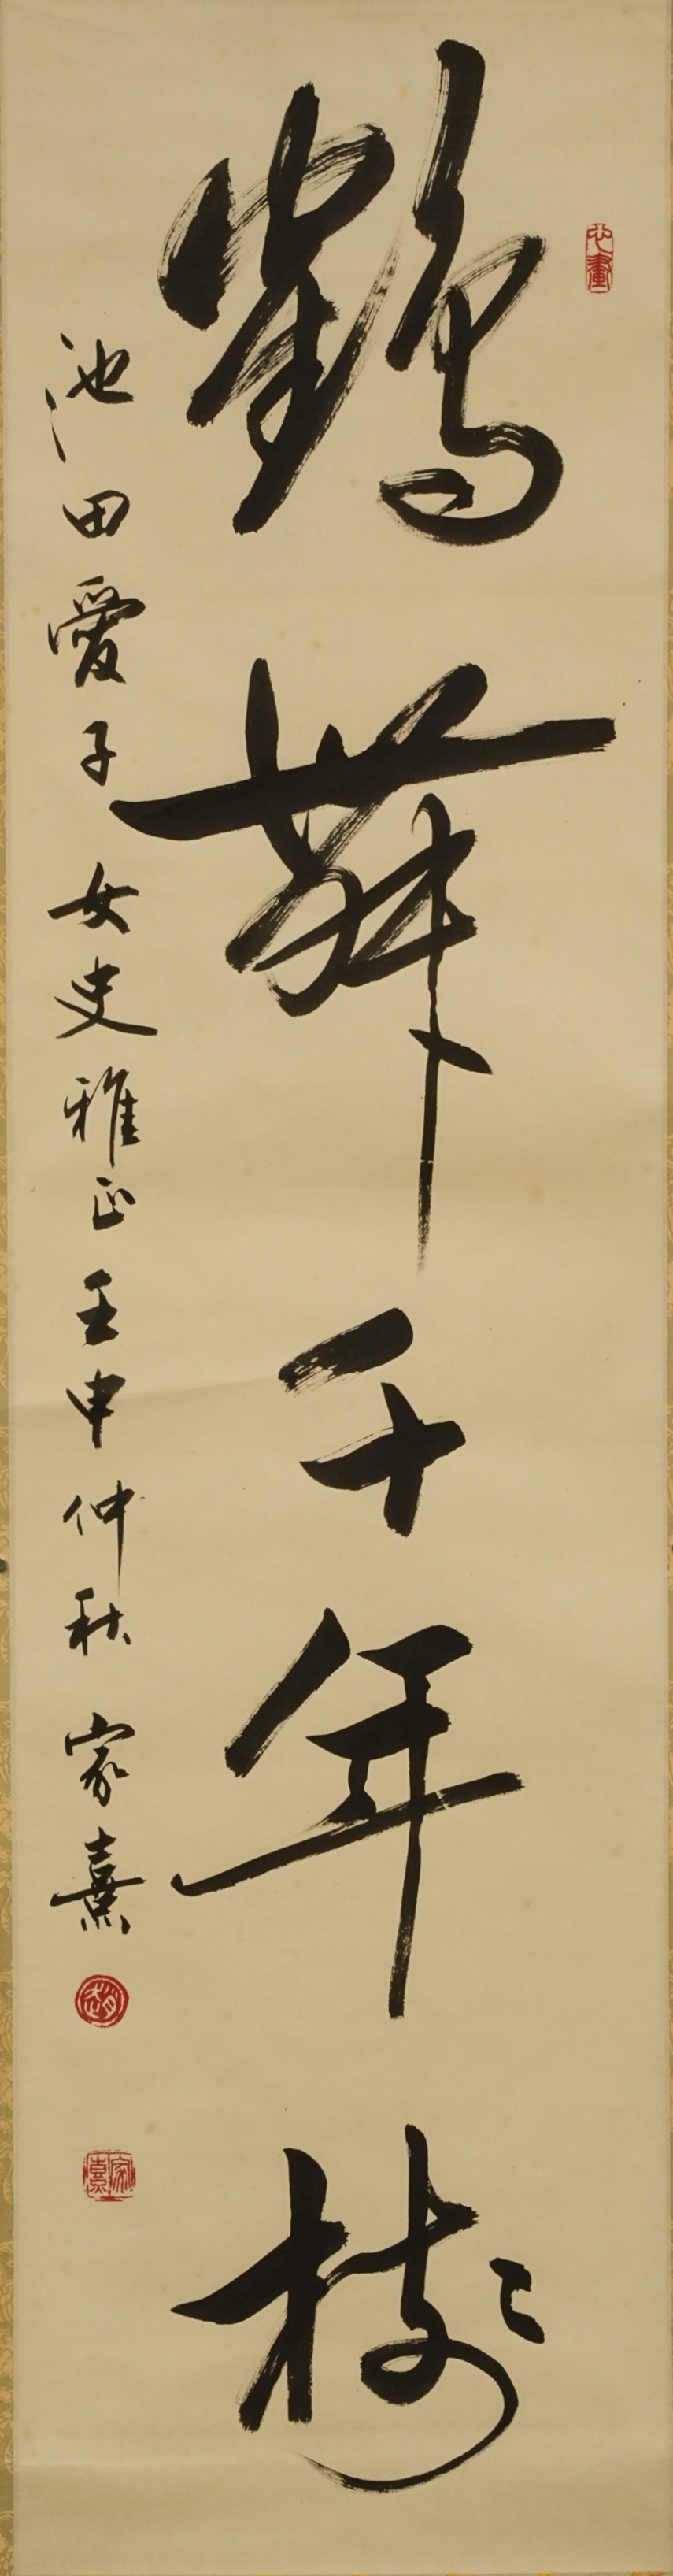 心畫
鶴舞千年樹
池田愛子女史雅正 壬申仲秋 家熹
家熹